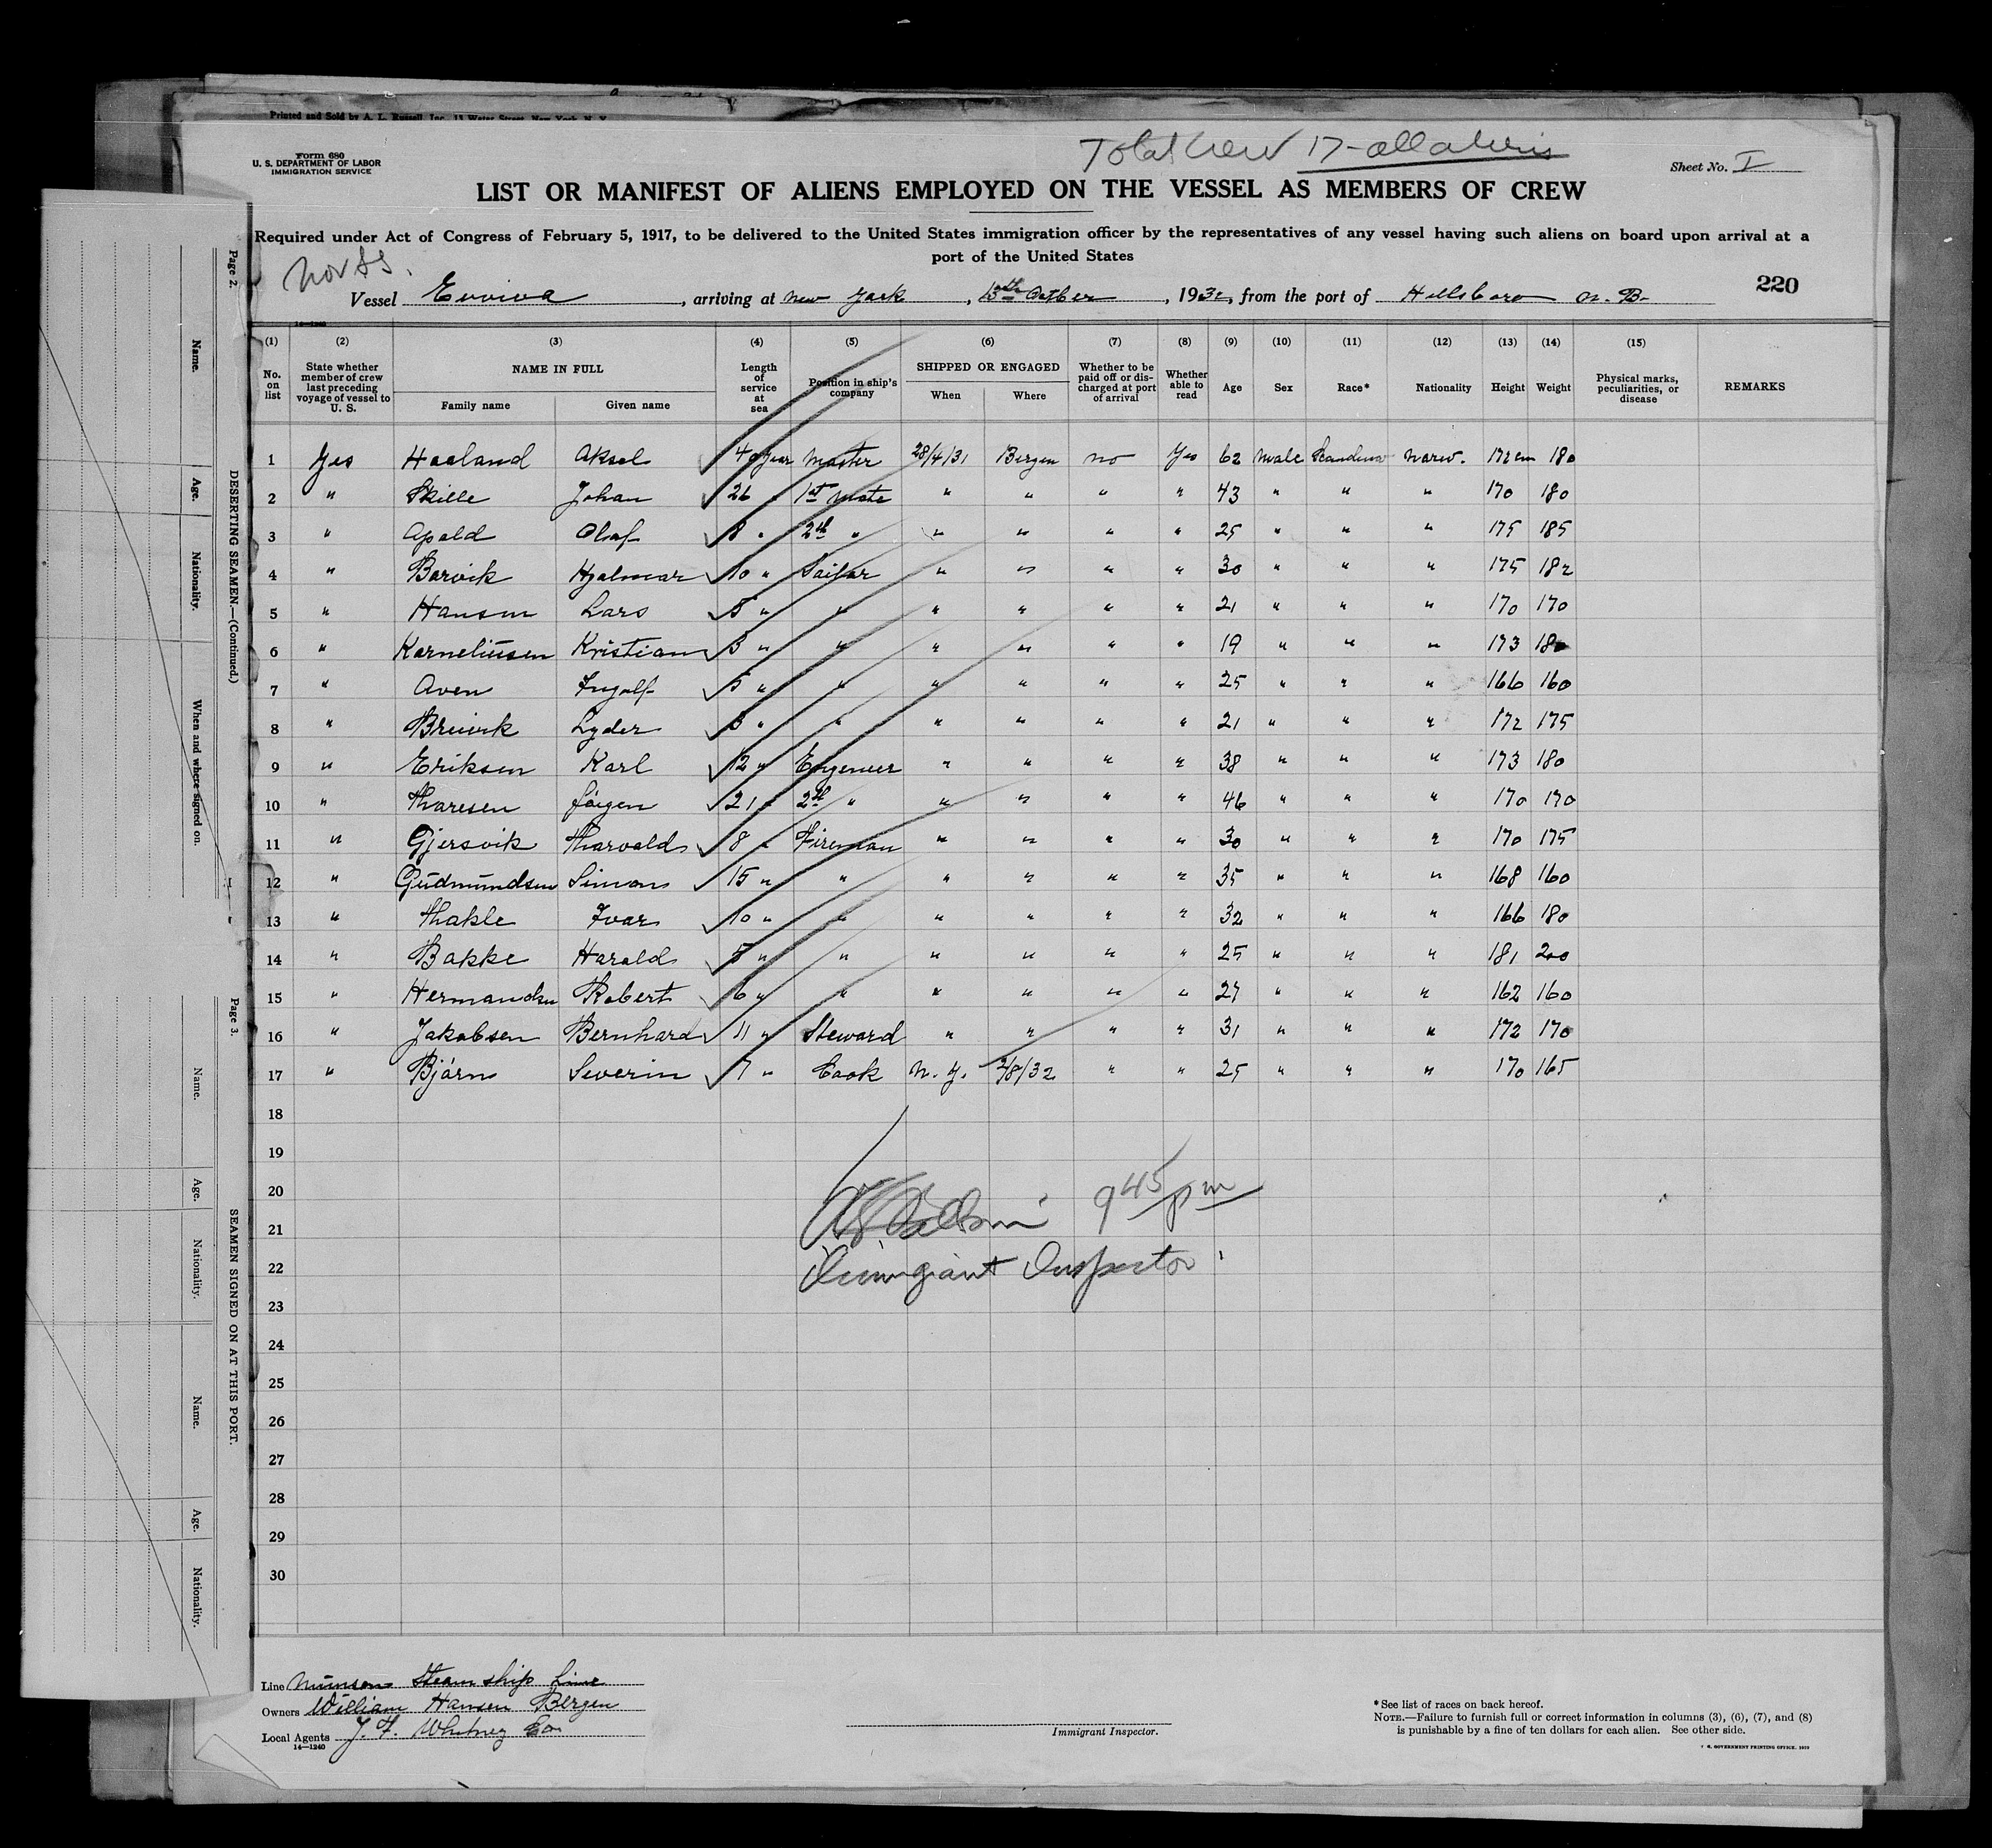 Printed and Sold by A. L. Russell, Inc., 15 Water Street, New York, N. Y.
Total Crew 17 - all aliens
Form 680
U. S. DEPARTMENT OF LABOR
IMMIGRATION SERVICE
Sheet No. I
LIST OR MANIFEST OF ALIENS EMPLOYED ON THE VESSEL AS MEMBERS OF CREW
Required under Act of Congress of February 5, 1917, to be delivered to the United States immigration officer by the representatives of any vessel having such aliens on board upon arrival at a
port of the United States
Nor SS.
220
Vessel Evviva, arriving at New York, 13th October, 1932, from the port of Hillsboro N. B.
14—1240
(1) (2) (3) (4) (5) (6) (7) (8) (9) (10) (11) (12) (13) (14) (15)
No. on list State whether member of crew last preceding voyage of vessel to U. S. NAME IN FULL Family name Given name Length of service at sea Position in ship's company SHIPPED OR ENGAGED When Where Whether to be paid off or discharged at port of arrival Whether able to read Age Sex Race* Nationality Height Weight Physical marks, peculiarities, or disease REMARKS
1 Yes Haaland Aksel 40 year Master 28/4/31 Bergen no Yes 62 Male Scandinav Norw. 172 cm 180
2 " Skille Johan 26 " 1st Mate " " " " 43 " " " 170 180
3 " Apold Olaf 8 " 2d " " " " " 25 " " " 175 185
4 " Barvik Hjalmar 10 " Sailor " " " " 30 " " " 175 182
5 " Hansen Lars 5 " " " " " " 21 " " " 170 170
6 " Korneliussen Kristian 3 " " " " " " 19 " " " 173 180
7 " Aven Ingolf 5 " " " " " " 25 " " " 166 160
8 " Breivik Lyder 3 " " " " " " 21 " " " 172 175
9 " Eriksen Karl 12 " Engeneer " " " " 38 " " " 173 180
10 " Thoresen Jörgen 21 " 2d " " " " " 46 " " " 170 170
11 " Gjersvik Thorvald 8 " Fireman " " " " 30 " " " 170 175
12 " Gudmundsen Simon 15 " " " " " " 35 " " " 168 160
13 " Thakle Ivar 10 " " " " " " 32 " " " 166 180
14 " Bakke Harald 5 " " " " " " 25 " " " 181 200
15 " Hermandsen Robert 6 " " " " " " 27 " " " 162 160
16 " Jakobsen Bernhard 11 " Steward " " " " 31 " " " 172 170
17 " Björn Severin 7 " Cook N. Y. 2/8/32 " " 25 " " " 170 165
18
19
20
21
22
23
24
25
26
27
28
29
30
9 45 pm
Immigrant Inspector
Line Munson Steam ship Line
Owners William Hansen Bergen
Local Agents J. F. Whitney Co
14—1240
Immigrant Inspector.
*See list of races on back hereof.
NOTE.—Failure to furnish full or correct information in columns (3), (6), (7), and (8)
is punishable by a fine of ten dollars for each alien. See other side.
U. S. GOVERNMENT PRINTING OFFICE
Page 2.
DESERTING SEAMEN.—(Continued.)
Name. Age. Nationality. When and where signed on.
Page 3.
SEAMEN SIGNED ON AT THIS PORT.
Name. Age. Nationality. Name. Age. Nationality.